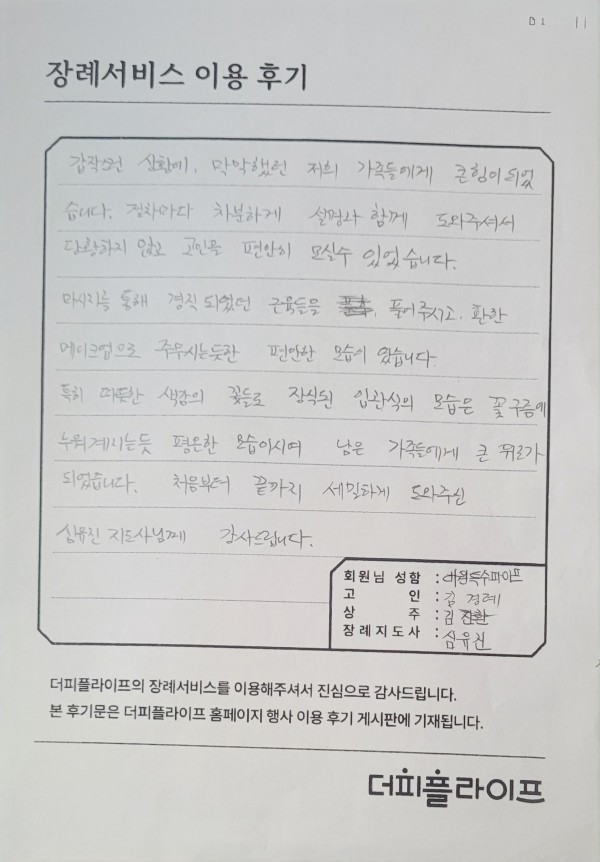 B 1 11
장례서비스 이용 후기
갑작스런 상황에, 막막했던 저희 가족들에게 큰힘이 되었
습니다. 절차마다 차분하게 설명과 함께 도와주셔서
당황하지 않고 고인을 편안히 모실수 있었습니다.
마사지를 통해 경직 되었던 근육들을 풀어주시고, 환한
메이크업으로 주무시는듯한 편안한 모습이 였습니다.
특히 따뜻한 색감의 꽃들로 장식된 입관식의 모습은 꽃구름에
누워계시는듯 평온한 모습이시여 남은 가족들에게 큰 위로가
되었습니다. 처음부터 끝까지 세밀하게 도와주신
심유진 지도사님께 감사드립니다.
회원님 성함 :
고 인 : 김 경례
상 주 : 김
장례지도사 : 심유진
더피플라이프의 장례서비스를 이용해주셔서 진심으로 감사드립니다.
본 후기문은 더피플라이프 홈페이지 행사 이용 후기 게시판에 기재됩니다.
더피플라이프